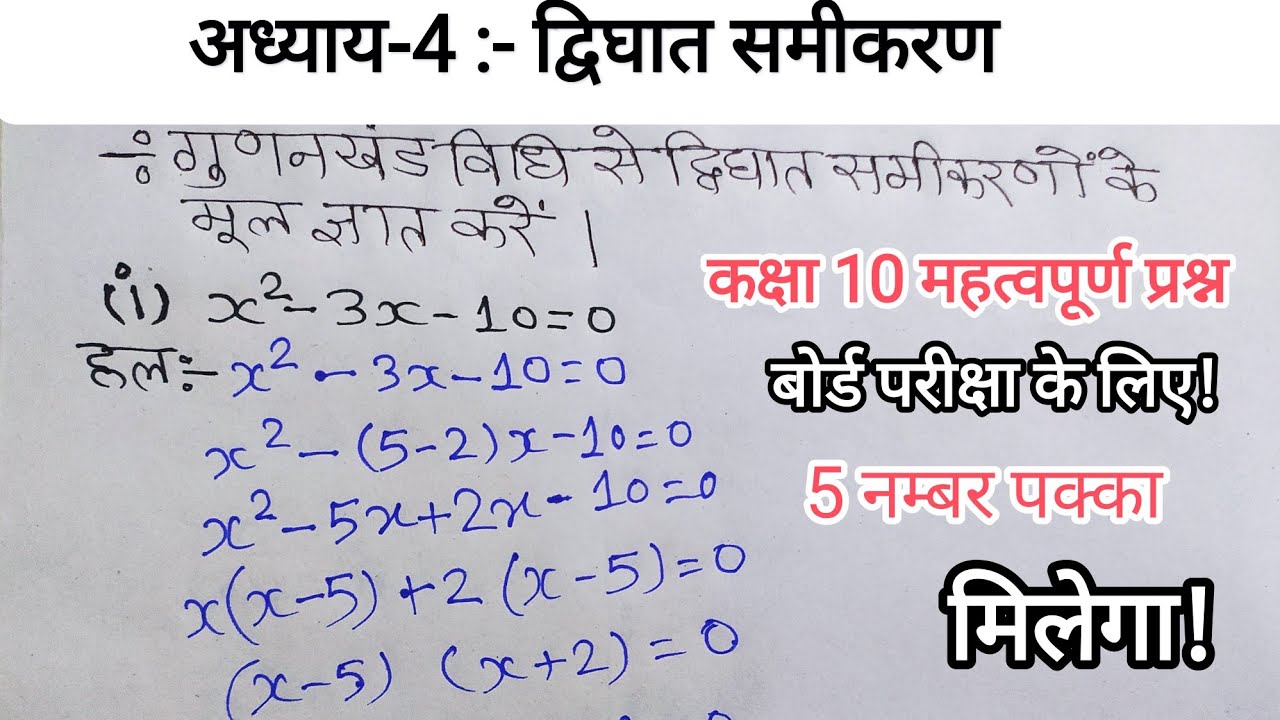 अध्याय-4 :- द्विघात समीकरण
÷ गुणनखंड विधि से द्विघात समीकरणों के
मूल ज्ञात करें।
(i) x² - 3x - 10 = 0
हल:- x² - 3x - 10 = 0
x² - (5-2)x - 10 = 0
x² - 5x + 2x - 10 = 0
x(x-5) + 2 (x-5) = 0
(x-5) (x+2) = 0
कक्षा 10 महत्वपूर्ण प्रश्न
बोर्ड परीक्षा के लिए!
5 नम्बर पक्का
मिलेगा!